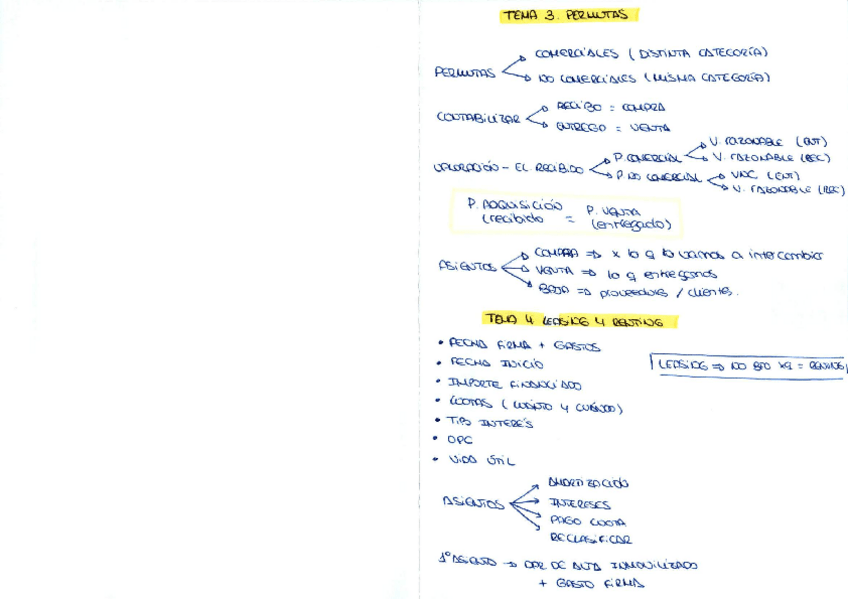 TEMA 3. PERMUTAS
PERMUTAS
COMERCIALES (DISTINTA CATEGORÍA)
NO COMERCIALES (MISMA CATEGORÍA)
CONTABILIZAR
RECIBO = COMPRA
ENTREGO = VENTA
VALORACIÓN - EL RECIBIDO
P. COMERCIAL
V. RAZONABLE (ENT)
V. RAZONABLE (REC)
P. NO COMERCIAL
VNC (ENT)
V. RAZONABLE (REC)
P. ADQUISICIÓN (recibido = P. VENTA (entregado)
ASIENTOS
COMPRA => x lo q lo vamos a intercambiar
VENTA => lo q entregamos
BAJA => proveedores / clientes.
TEMA 4 LEASING Y RENTING
• FECHA FIRMA + GASTOS
• FECHA INICIO
• IMPORTE FINANCIADO
• CUOTAS (CUÁNTO Y CUÁNDO)
• TIPO INTERÉS
• OPC
• VIDA ÚTIL
LEASING => NO xq = RENTING
ASIENTOS
AMORTIZACIÓN
INTERESES
PAGO CUOTA
RECLASIFICAR
1º ASIENTO → DAR DE ALTA INMOVILIZADO
+ GASTO FIRMA